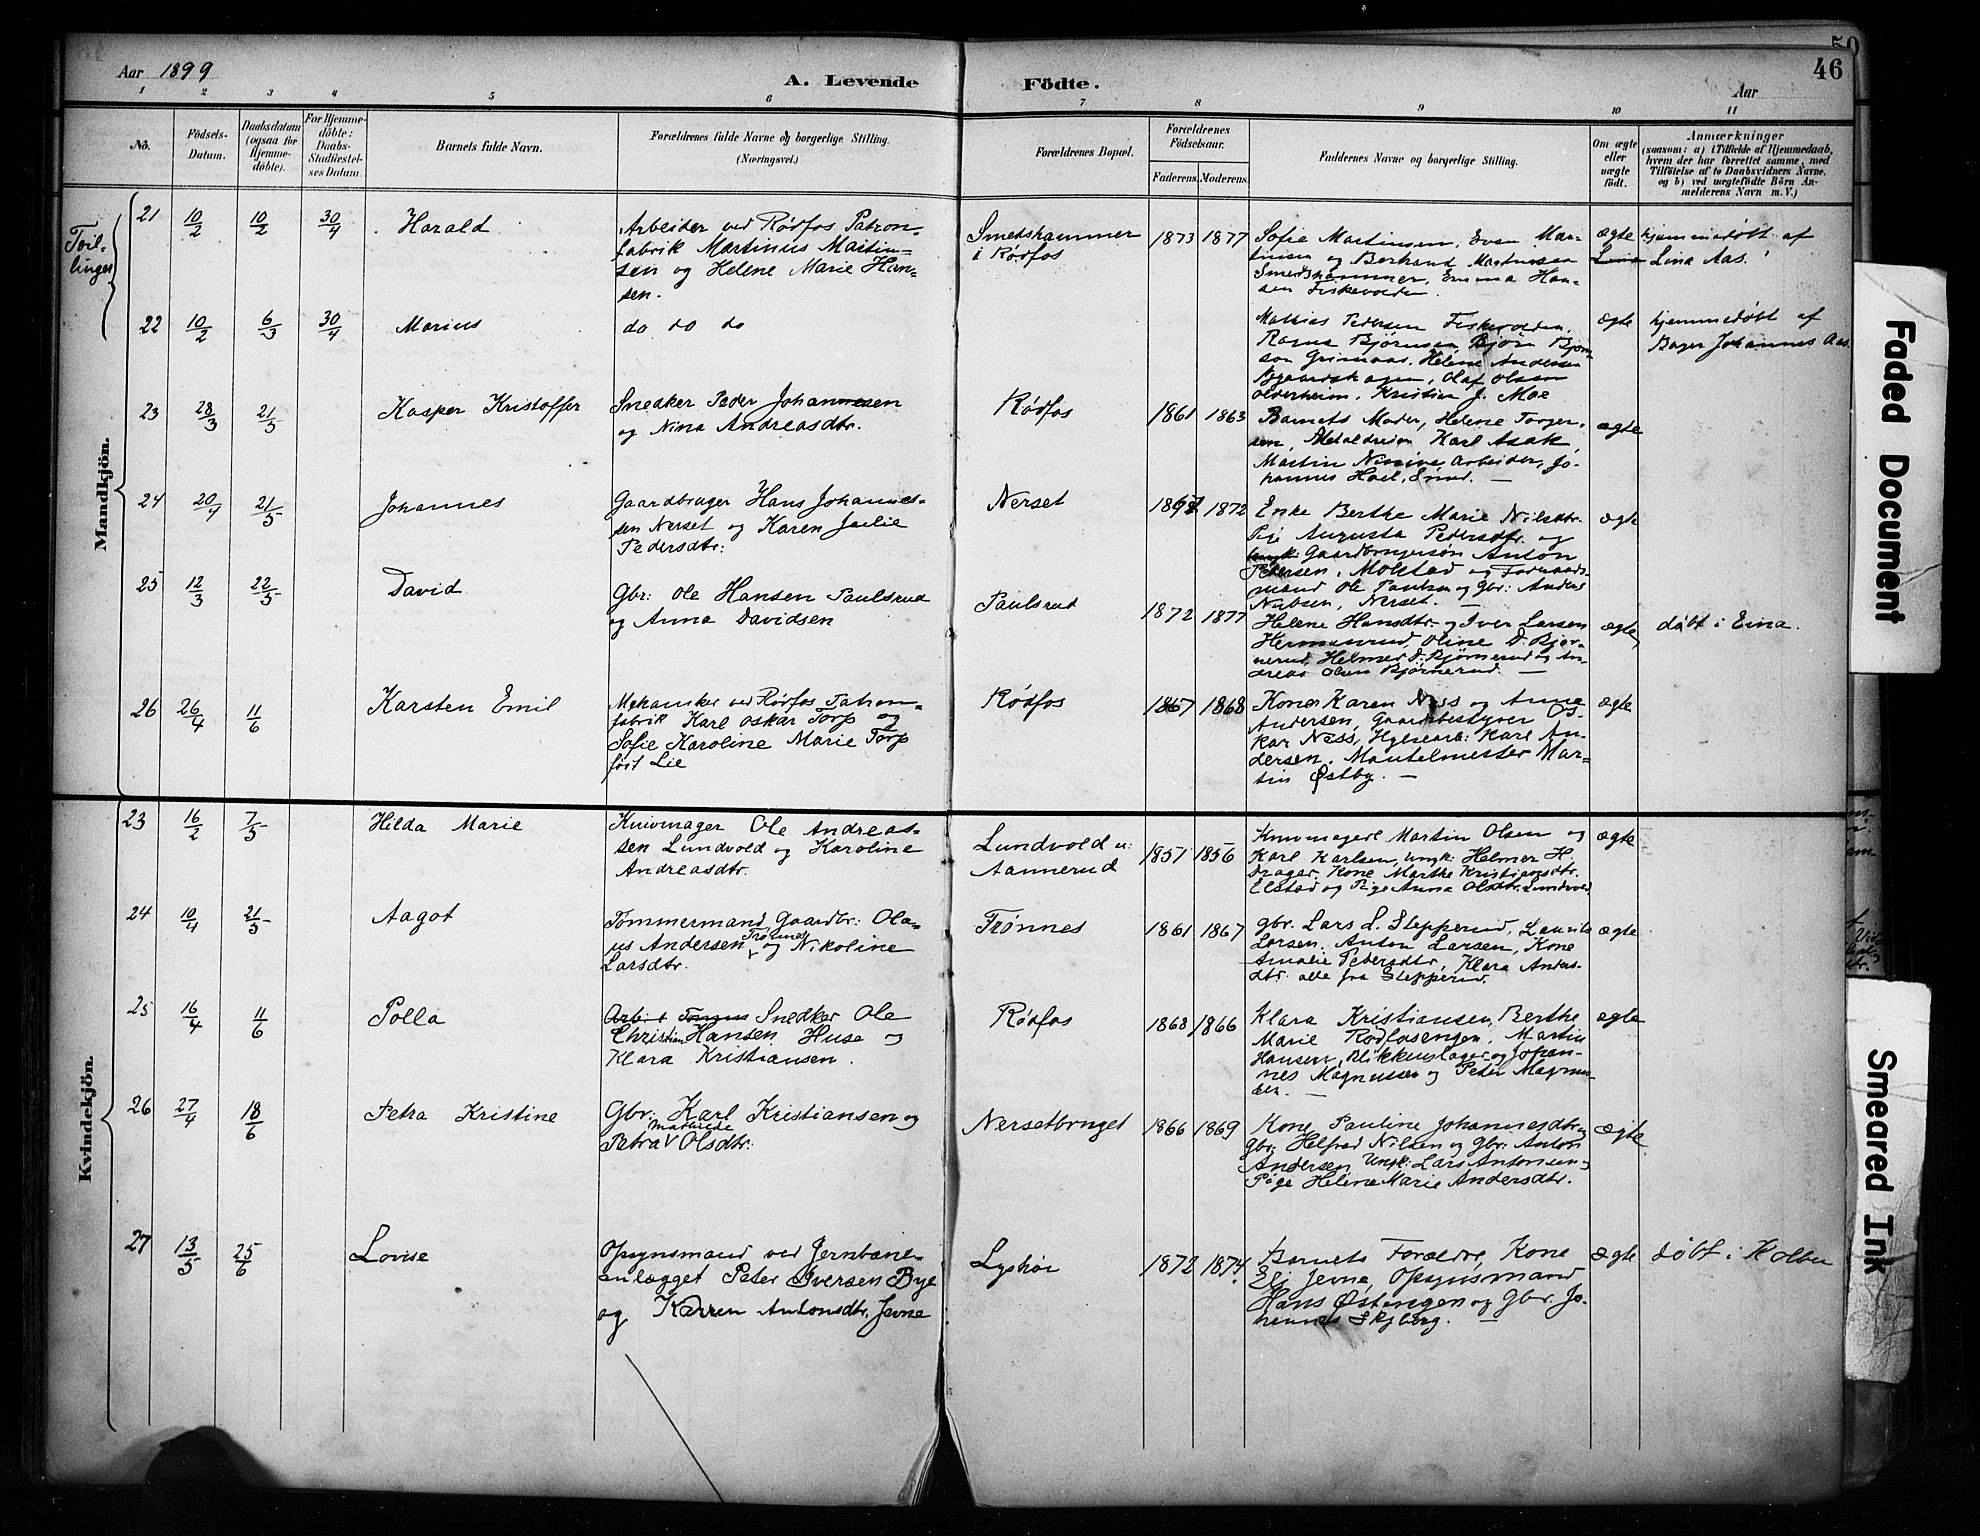 Aar 1899
A. Levende
Födte.
Aar
50
46
1 2 3 4 5 6 7 8 9 10 11
No.
Födsels-
Datum.
Daabsdatum
(ogsaa for
Hjemme-
döbte).
For Hjemme-
döbte:
Daabs-
Stadfæstel-
ses Datum.
Barnets fulde Navn.
Forældrenes fulde Navne og borgerlige Stilling.
(Næringsvei.)
Forældrenes Bopæl.
Forældrenes
Födselsaar.
Faderens. Moderens.
Faddernes Navne og borgerlige Stilling.
Om ægte
eller
uægte
födt.
Anmærkninger
(saasom: a) i Tilfælde af Hjemmedaab,
hvem der har forrettet samme, med
Tilföielse af to Daabsvidners Navne,
og b) ved uægtefödte Börn An-
melderens Navn m. V.)
Mandkjön.
Tvil-
linger
21 10/2 10/2 30/4 Harald
Arbeider ved Rødfos Patron-
fabrik Martinus Martin-
sen og Helene Marie Han-
sen.
Smedshammer
i Rødfos
1873 1877
Sofie Martinsen, Even Mar-
tinsen og Bertrand Magnussen
Smedshammer, Emma Han-
sen Fiskevolden.
ægte
hjemmedøbt af
Lina Aas.
22 10/2 6/3 30/4 Marius
do do do
Mathias Pedersen Fiskevolden,
Ragna Bjørnsen, Bjørn Bjørn-
son Grimaas, Helene Andersen
Bygaardshagen, Olaf Olsen
Olderheim, Kristian J. Moe
ægte
hjemmedøbt af
Bager Johannes Aas.
23 28/3 21/5 Kasper Kristoffer
Snedker Peder Johannesen
og Nina Andreasdtr.
Rødfos
1861 1863
Barnets Moder, Helene Torger-
sen, Metaldreier Karl Asak
Martin Ninive, Arbeider, Jo-
hannes Hoel, Smed.
ægte
24 20/4 21/5 Johannes
Gaardbruger Hans Johannes-
sen Nerset og Karen Julie
Pedersdtr:
Nerset
1872
Enke Berthe Marie Nilsdtr.
Pige Augusta Pedersdtr. og
Gaardbrugersøn Anton
Pedersen, Molstad og Forraads-
mand Ole Paulsen og Gbr: Anders
Nubsen, Nerset.
ægte
25 12/3 22/5 David
Gbr: Ole Hansen Paulsrud
og Anna Davidsen
Paulsrud
1872 1877
Helene Hansdtr. og Iver Larsen
Hermanrud, Oline D. Bjør-
nerud, Helmer D. Bjørnerud og An-
dreas Olsen Bjørnerud.
ægte
døbt i Eina.
26 26/4 11/6 Karsten Emil
Mekaniker ved Rødfos Patron-
fabrik Karl Oskar Torp og
Sofie Karoline Marie Torp
født Lie
Rødfos
1867 1868
Koner Karen Næss og Anne
Andersen, Gaardbestyrer Os-
kar Næss, Hylsearb: Karl An-
dersen. Mantelmester Mar-
tin Østby.
ægte
Kvindekjön.
23 16/2 7/5 Hilda Marie
Knivmager Ole Andreas-
sen Lundvold og Karoline
Andreasdtr.
Lundvold u:
Aannerud
1851 1856
Knivmagere Martin Olsen og
Karl Karlsen, Ungk: Helmer H.
Drager, Kone Marthe Kristiansdtr.
Elstad og Pige Anna Olsdtr. Lundvold
ægte
24 10/4 21/5 Aagot
Tømmermand, Gaardbr: Ola-
us Andersen Trønnes og Nikoline
Larsdtr.
Trønnes
1861 1867
Gbr. Lars L. Slepperud, Laurits
Larsen, Anton Larsen, Kone
Amalie Pedersdtr, Klara Anders-
dtr. alle fra Slepperud.
ægte
25 16/4 11/6 Polla
Snedker Ole
Christian Hansen Huse og
Klara Kristiansen.
Rødfos
1868 1866
Klara Kristiansen, Berthe
Marie Rødfosengen, Martin
Hansen, Blikkenslager og Johan-
nes Magnussen og Peter Magnus-
sen.
ægte
26 27/4 18/6 Petra Kristine
Gbr: Karl Kristiansen og
Petra Mathilde Olsdtr:
Nersetbruget
1866 1869
Kone Pauline Johannesdtr.
Gbr. Helfred Nilsen og Gbr: Anton
Andersen, Ungk: Lars Antonsen,
Pige Helene Marie Andersdtr.
ægte
27 13/5 25/6 Lovise
Opsynsmand ved Jernbane-
anlægget Peter Iversen Bye
og Karen Antonsdtr. Jevne
Lyshøi
1872 1874
Barnets Forældre, Kone
Eli Jevne, Opsynsmand
Hans Østengen og Gbr. Jo-
hannes Skjberg.
ægte
døbt i Kolbu
Faded Document
Smeared Ink